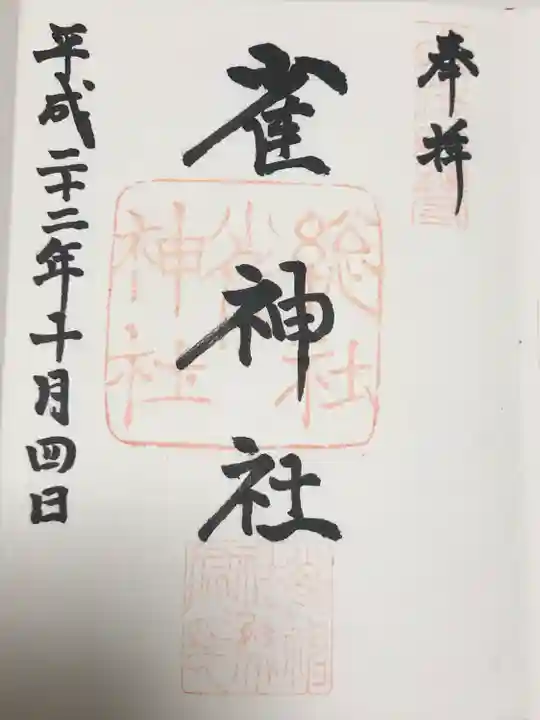 奉拝
雀神社
総社
雀
神社
平成二十二年十月四日